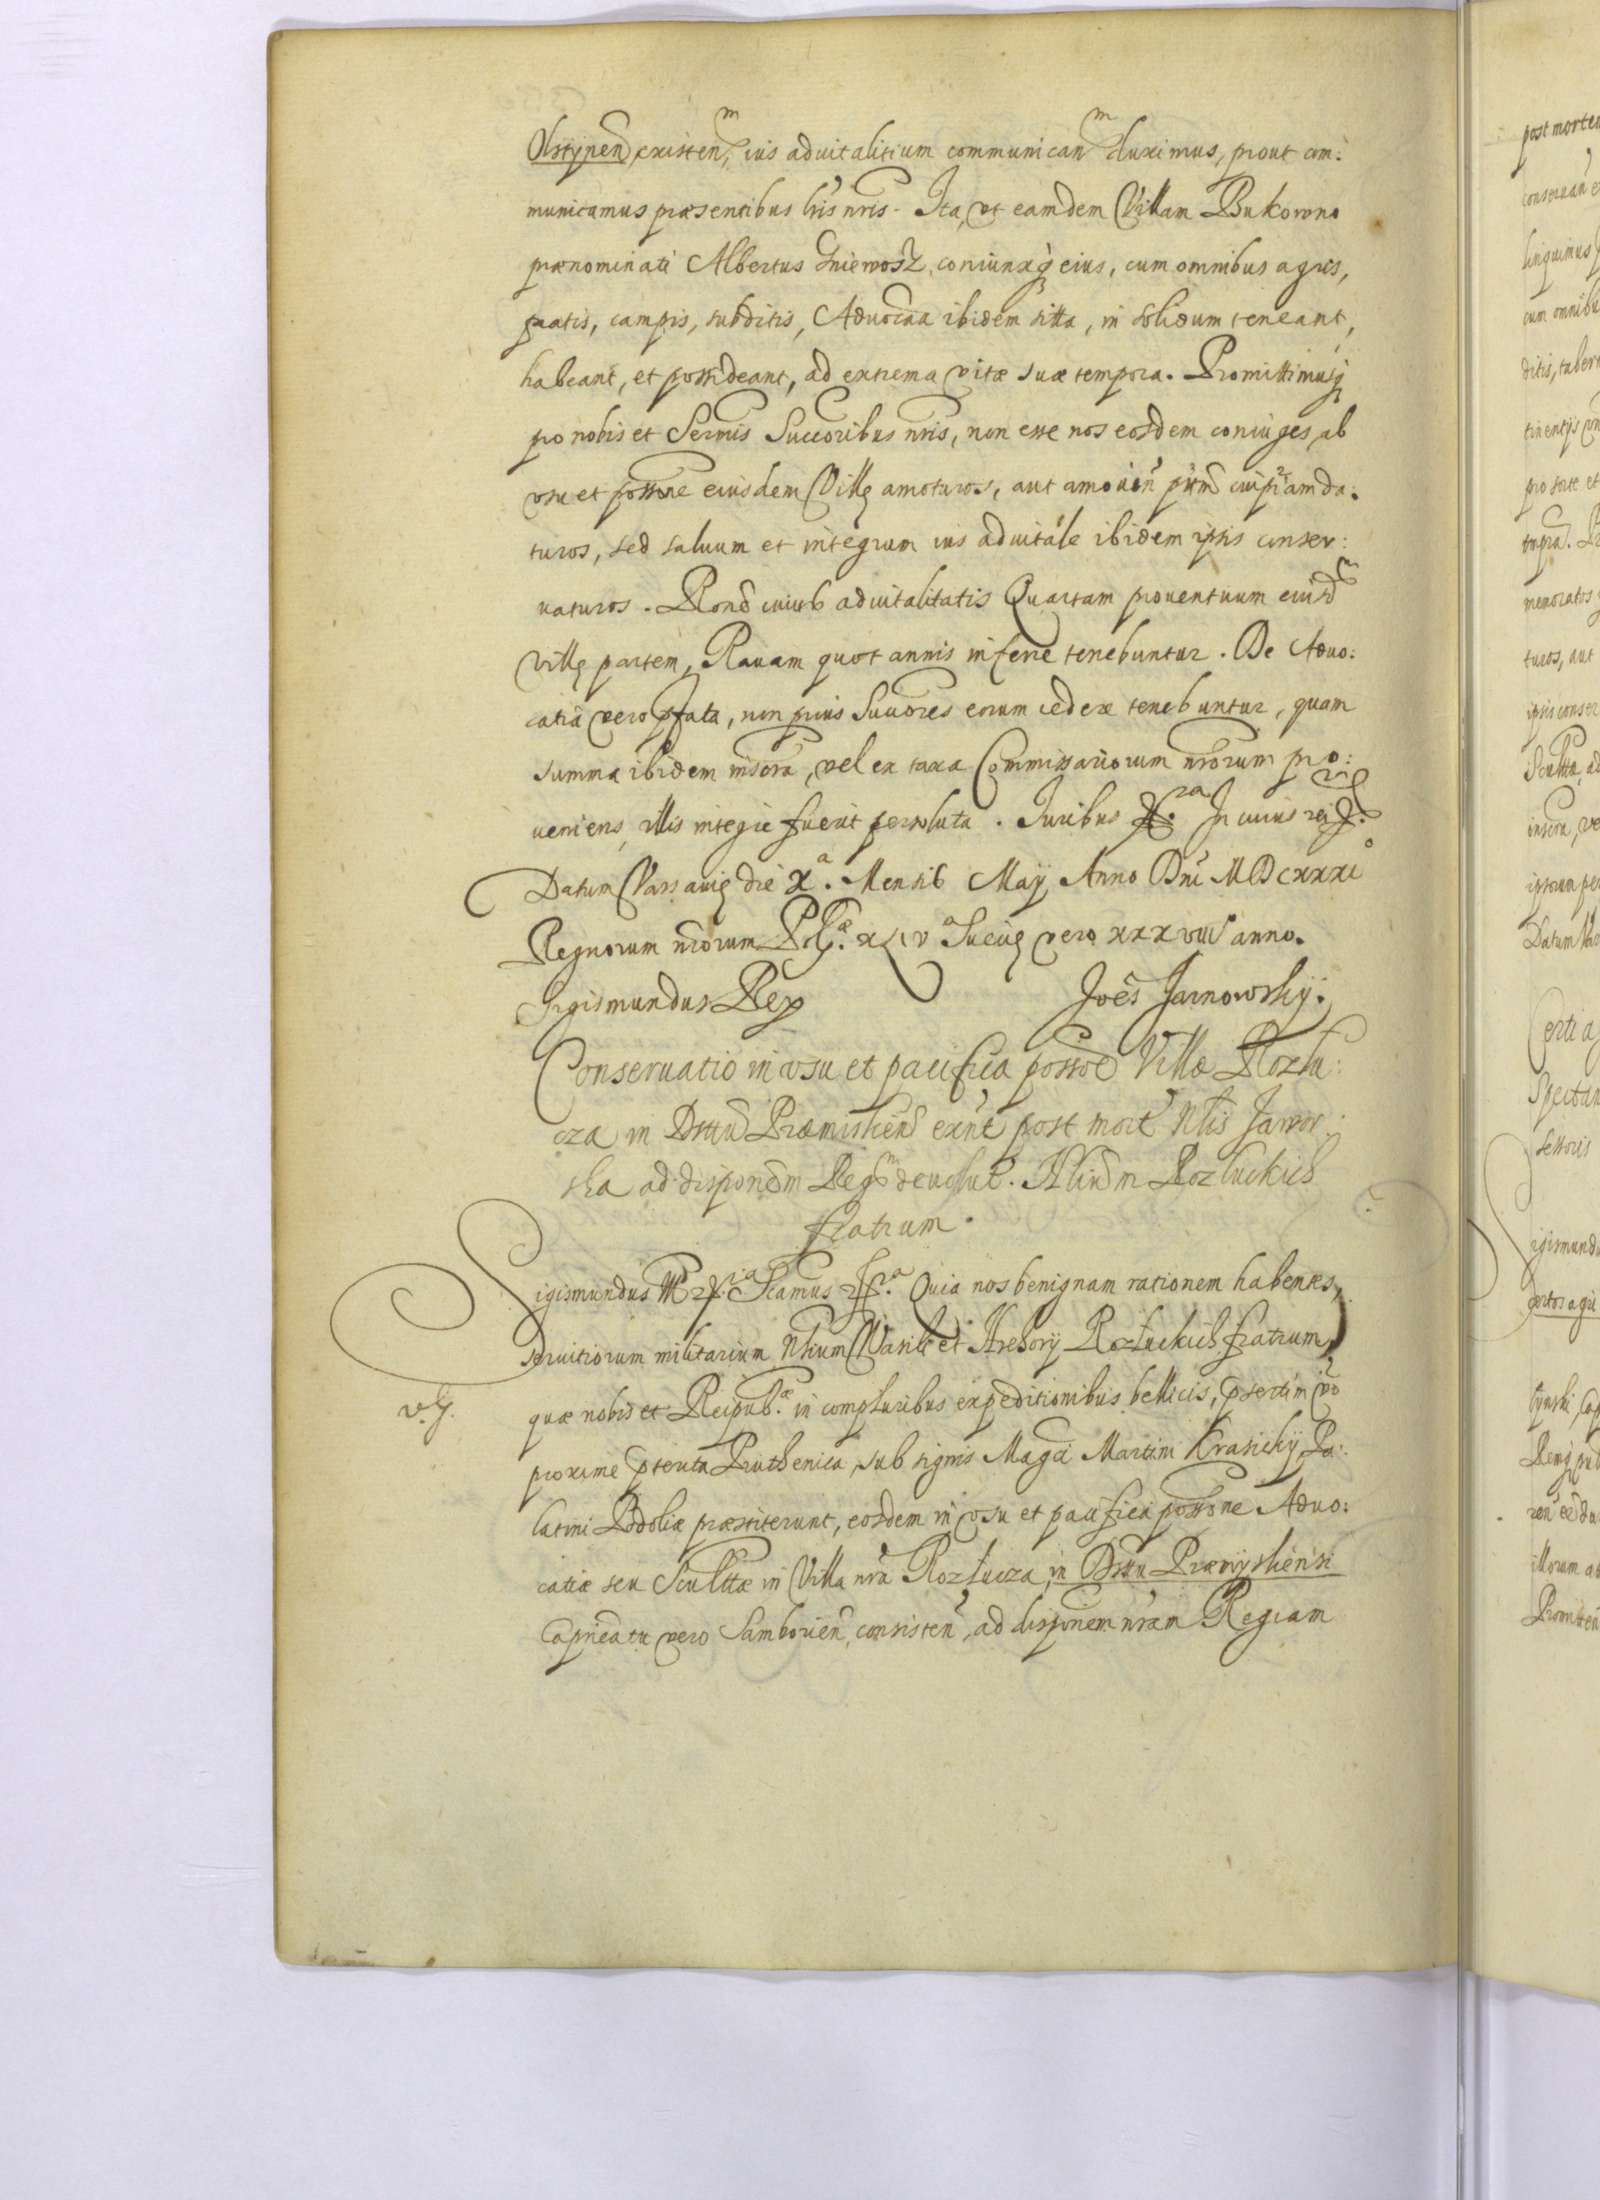 Olstÿnen existen, ius aduitalitium communican duximus, prout com:
municamus præsentibus lris nris. Ita, vt eamdem Villam Bukowno
prænominati Albertus Gniewosz, coniunxq eius, cum omnibus agris,
pratis, campis, subditis, Aduocãa ibidem sitta, in solidum teneant,
habeant, et possideant, ad extrema vitæ suæ tempora. Promittimusq
pro nobis et Sermis Succoribus nris, non esse nos eosdem coniuges, ab
vsu et possone eiusdem Villę amoturos, aut amouen
turos, sed saluum et integrum ius aduitale ibidem ipsis conser:
uaturos. Rone cuius aduitalitatis Quartam prouentuum eiusd
Villę partem, Rauam quot annis inferre tenebuntur. De Aduo:
catia vero pfata, non prius Succores eorum cedere tenebuntur, quam
summa ibidem inscra, vel ex taxa Commissariorum nrorum pro:
ueniens, illis integre fuerit persoluta. Iuribus In cuius rei
Datum Varsauię die X.a Mensis Maÿ Anno Dni MDCXXXIo
Regnorum nrorum Pol.æ XLIV Suecię vero XXXVIII anno.
Sigismundus Rex Joẽs Jarnowskÿ.
Conseruatio in vsu et pacifica possoe Villæ Rozłu:
cza in Dsttu Præmislien exnt post mort Nlis Jawor:
ska ad disponem Reg deuolut. Nlium Rozłuckich
fratrum.
Sigismundus Scamus Quia nos benignam rationem habentes,
seruitiorum militarium Nlium Wasili et Hrehorÿ Rozłuckich fratrum,
quæ nobis et Reipub.æ in compluribus expeditionibus bellicis, psertim vo
v.g.
proxime pterita Pruthenica, sub signis Magci Martini Krasickÿ Pa:
latini Podoliæ præstiterunt, eosdem in vsu et pacifica possone Aduo:
catiæ seu Scultæ in Villa nra Rozłucza, in Dsttu Præmÿsliensi
Capneatu vero Samborien, consisten, ad disponem nram Regiam